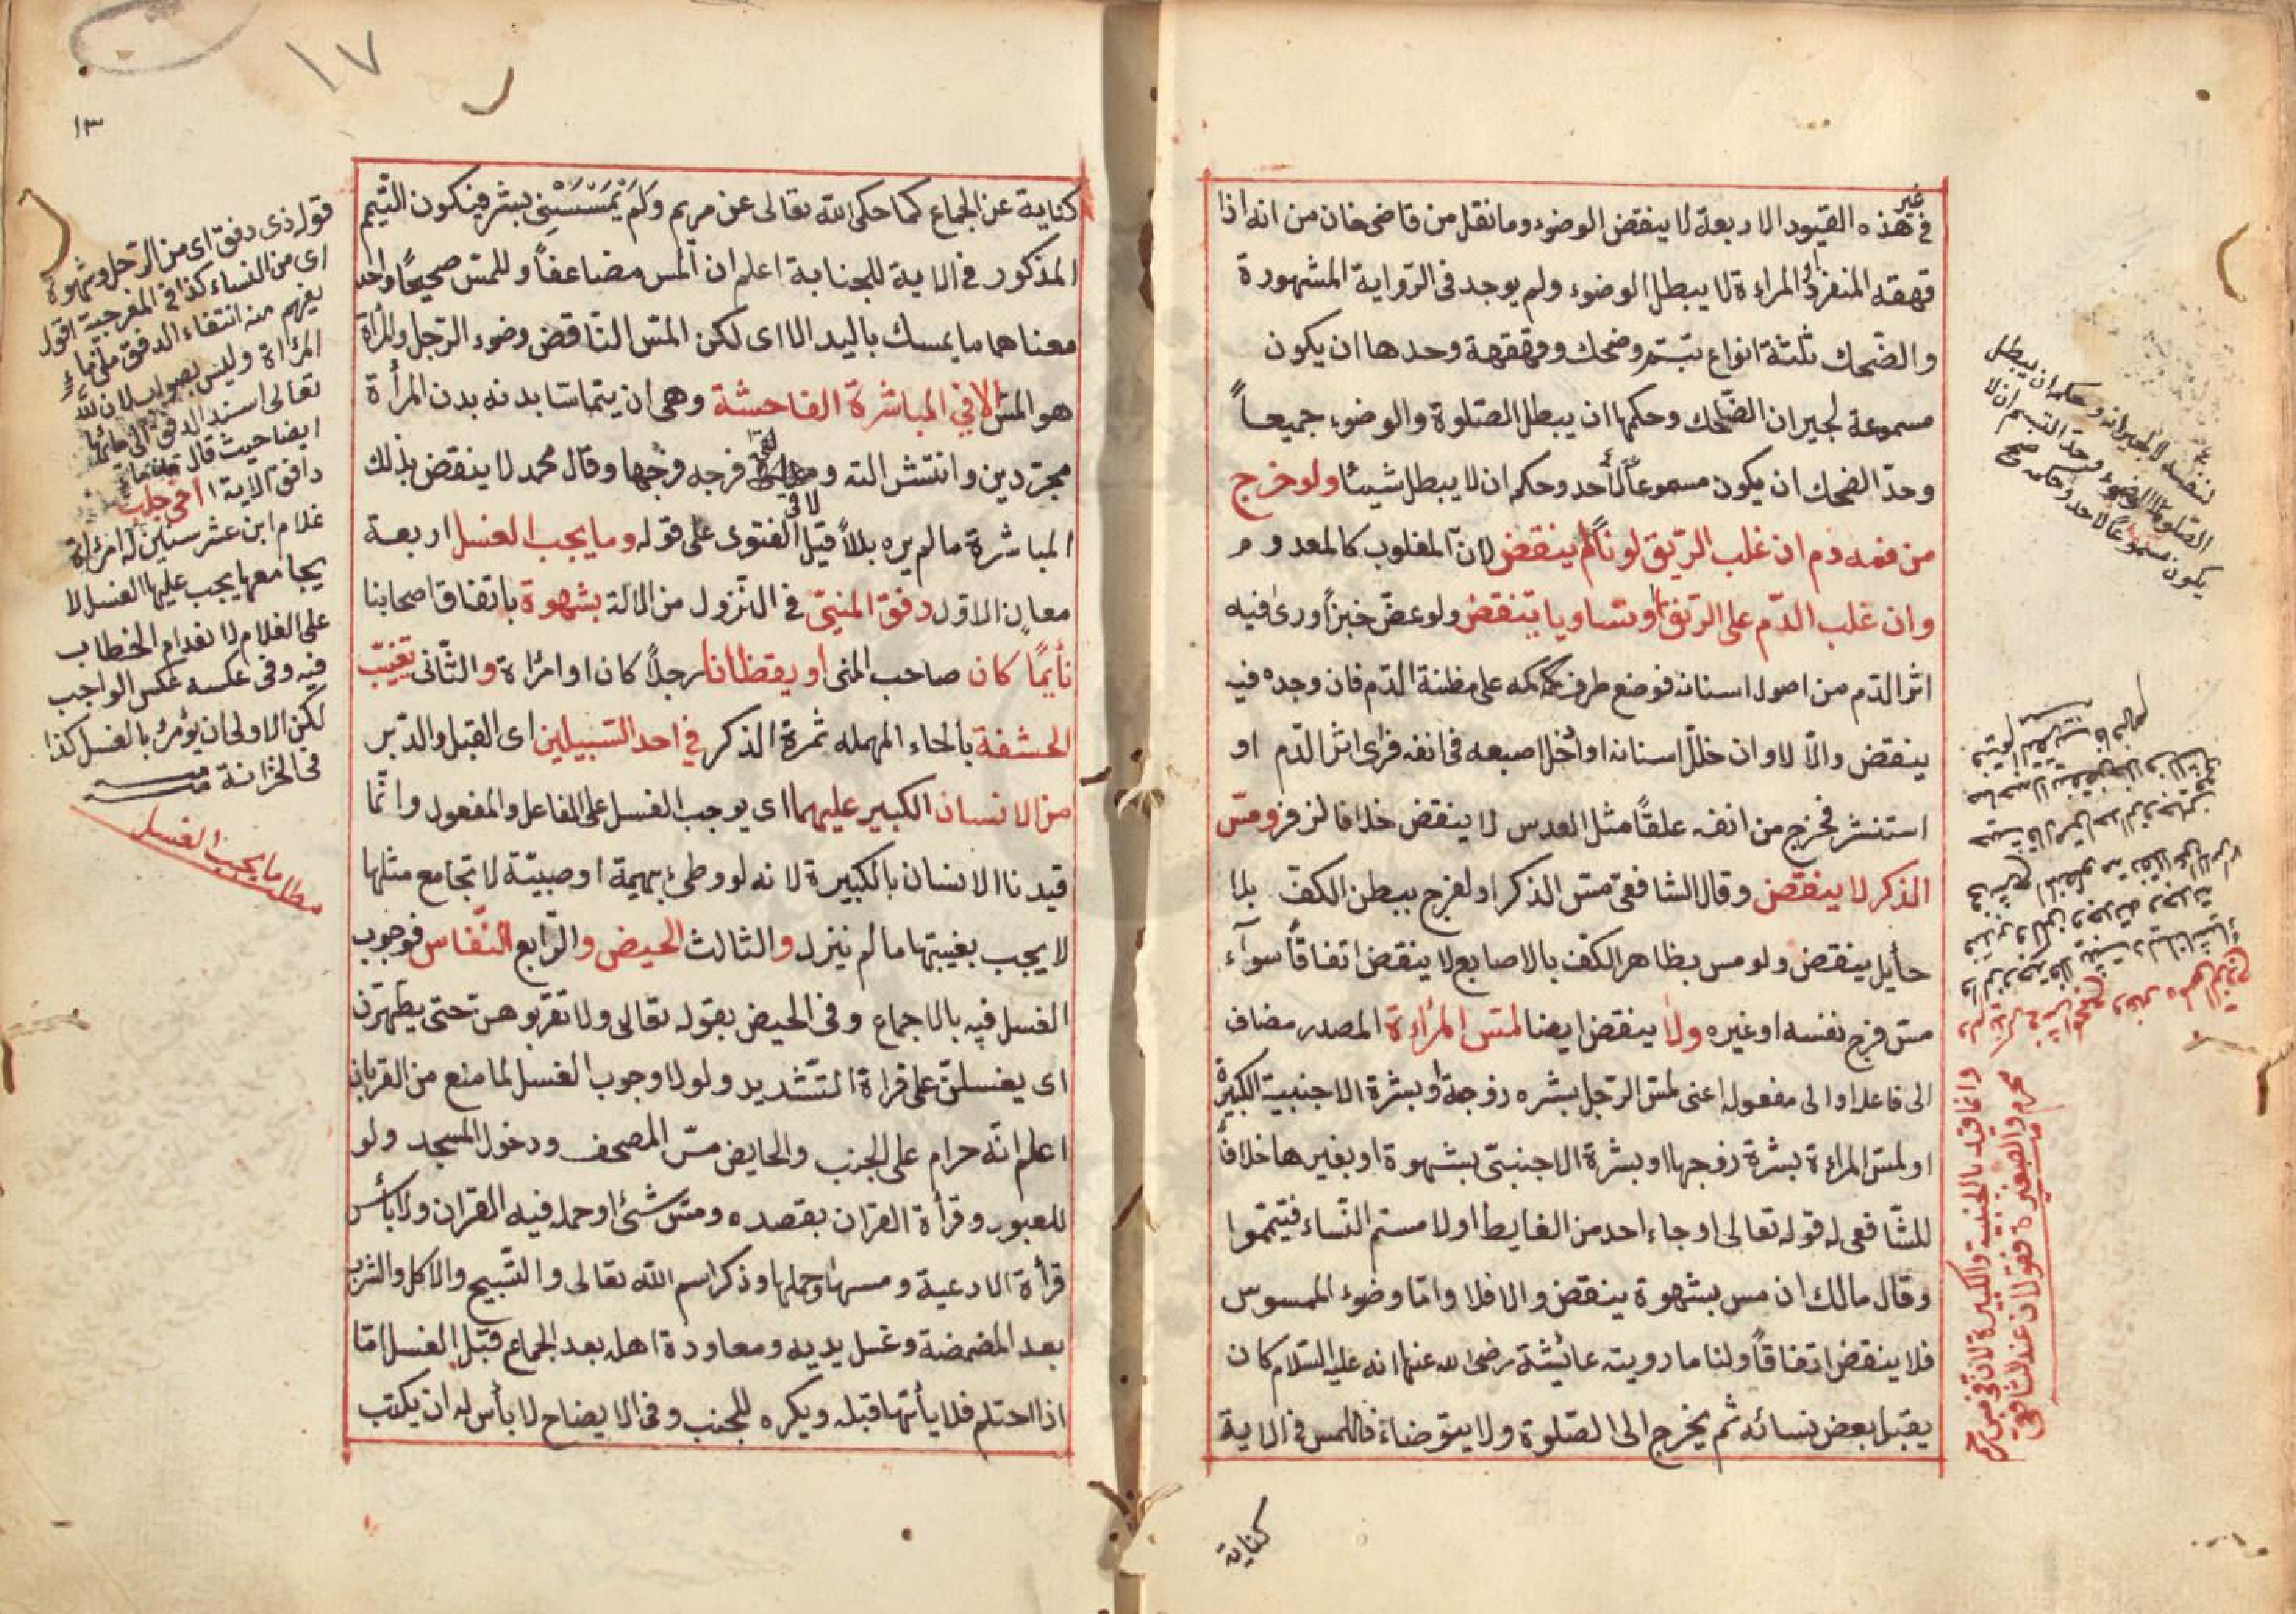 في غير هذه القيود الاربعة لا ينقض الوضوء وما نقل من قاضى خان من انه اذا
قهقه المنفرد او المراءة لا يبطل الوضوء ولم يوجد فى الرّواية المشهورة
والضّحك ثلثة انواع تبسّم وضحك وقهقهة وحدها ان يكون
مسموعة لجيران الضّاحك وحكمها ان يبطل الصّلوة والوضوء جميعاً
وحدّ الضحك ان يكون مسموعاً لأحد وحكم ان لا يبطل شيئا ولو خرج
من فمه دم ان غلب الرّيق لوناً لم ينقض لانّ المغلوب كالمعدوم
وان غلب الدّم على الرّيق او تساويا ينقض ولو عضّ خبزاً ورئ فيه
اثر الدّم من اصول اسنانه فوضع طرف كمه على مظنة الدّم فان وجده فيه
ينقض والّا لا وان خلّل اسنانه او أدخل اصبعه فى انفه فرأى اثر الدّم او
استنشر فخرج من انفه علقاً مثل العدس لا ينقض خلافا لزفر ومسّ
الذكر لا ينقض وقال الشافعىّ مسّ الذكر او الفرج ببطن الكفّ بلا
حأيل ينقض ولو مس بظاهر الكف بالاصابع لا ينقض اتفاقاً سوآء
مسّ فرج نفسه او غيره ولا ينقض ايضا لمسّ المرأءة المصدر مضاف
الى فاعله او الى مفعوله اعنى لمسّ الرّجل بشره زوجة او بشرة الاجنبية الكبيرة
او لمسّ المراءة بشرة زوجها او بشرة الاجنبىّ بشهوة او بغيرها خلافاً
للشّافعى له قوله تعالى او جاء احد من الغايط او لامستم النّساء فتيمّموا
وقال مالك ان مس بشهوة ينقض والا فلا وامّا وضوء الممسوس
فلا ينقض اتفاقاً ولنا ما رويته عائيشة رضى الله عنها انه عليه السّلام كان
يقبّل بعض نسائه ثم يخرج الى الصّلوة ولا يتوّضاء فاللمس فى الاية
كناية
لنفسه لا لجيرانه وحكمه ان يبطل
الصّلوة لا الوضوء وحدّ التبسّم ان لا
يكون مسموعاً لاحد وحكمه صح
وانما قيد بالاجنبية والكبيرة لان فى مس
محرم والصغيرة قولان عند الشافعى
١٧
١٣
كناية عن الجماع كما حكى الله تعالى عن مريم وَلَمْ يَمْسَسْنِى بشر فيكون التّيمّم
المذكور فى الاية للجنابة اعلم ان المس مضاعفاً وللمسّ صحيحًا واحد
معناهما ما يمسك باليد الااى لكن المسّ النّاقض وضوء الرّجل والمرأة
هو المسّ الا في المباشرة الفاحشة وهى ان يتماسّا بدنه بدن المرأة
مجرّدين وانتشر الته و لاقى فرجه فرجها وقال محمد لا ينقض بذلك
المباشرة ما لم يره بللاً قيل الفتوى على قوله وما يجب الغسل اربعة
معانٍ الاوّل دفق المنىّ في النّزول من الالة بشهوة باتفاق اصحابنا
نأيمًا كان صاحب المنى او يقظانا رجلاً كان او امرُاة والثّانى تغيّب
الحشفة بالحاء المهمله ثمرة الذكر في احد السّبيلين اى القبل والدّبر
من الانسان الكبير عليهما اى يوجب الغسل على الفاعل والمفعول وانّما
قيدنا الانسان بالكبيرة لانه لو وطئ بهيمة او صبيّة لا تجامع مثلها
لا يجب بغيبتها ما لم ينزل والثالث الحيض والرّابع النّفاس فوجوب
الغسل فيه بالاجماع وفى الحيض بقوله تعالى ولا تقربوهنّ حتى يطّهّرن
اى يغتسلن على قراة التّشديد ولولا وجوب الغسل لما منع من القربان
اعلم انّه حرام على الجنب والحايض مسّ المصحف ودخول المسجد ولو
للعبور وقرأة القران بقصده ومسّ شئ او حمله فيه القران ولا بأس
قرأة الادعية ومسها وحملها وذكر اسم الله تعالى والتّسبيح والاكل والشرب
بعد المضمضة وغسل يديه ومعاودة اهله بعد الجماع قبل الغسل امّا
اذا احتلم فلا يأتها قبله ويكره للجنب وفى الايضاح لا بأس له ان يكتب
قوله ذى دفق اى من الرّجل وشهوة
اى من النساء كذا فى المفرجية اقول
يفهم منه انتفاء الدفق من ماء
المرأة وليس بصواب لان لله
تعالى اسند الدفق الى مائها
ايضا حيث قال خلق من ماء
دافق الاية اخى جلبى
غلام ابن عشر سنين له امرُاة
يجامعها يجب عليها الغسل لا
على الغلام لانعدام الخطاب
فيه وفى عكسه عكس الواجب
لكن الاولى ان يؤمر بالغسل كذا
فى الخزانة
مطلب ما يجب الغسل